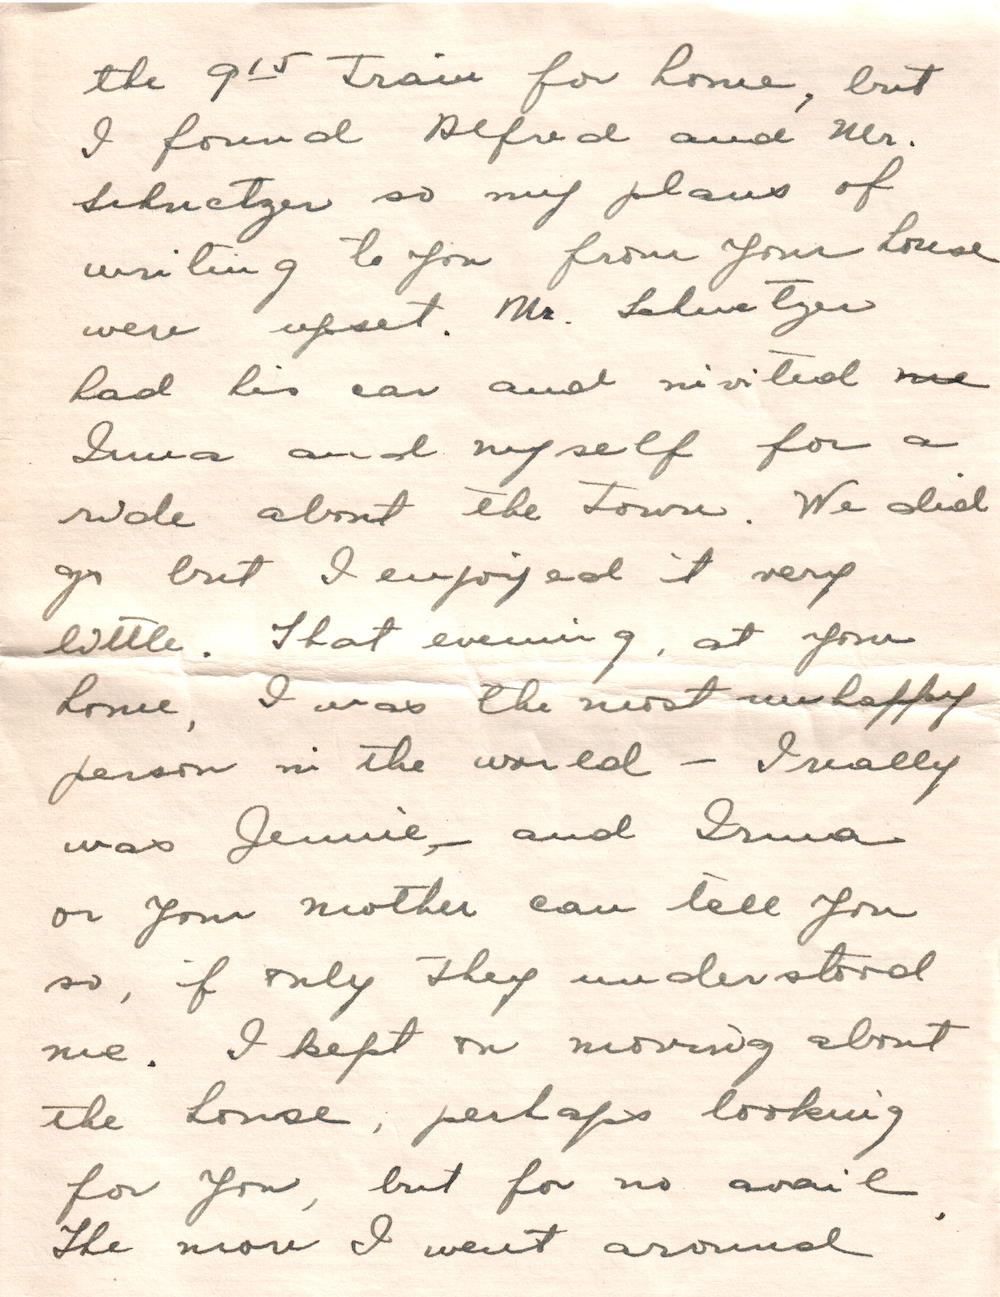 the 9 15 Train for home, but
I found Alfred and Mr.
Schuetzer so my plans of
writing to you from your house
were upset. Mr. Schuetzer
had his car and invited me
Irma and myself for a
ride about the Town. We did
go but I enjoyed it very
little. That evening, at your
home, I was the most unhappy
person in the world – I really
was Jennie, – and Irma
or your mother can tell you
so, if only they understood
me. I kept on moving about
the house, perhaps looking
for you, but for no avail.
The more I went around